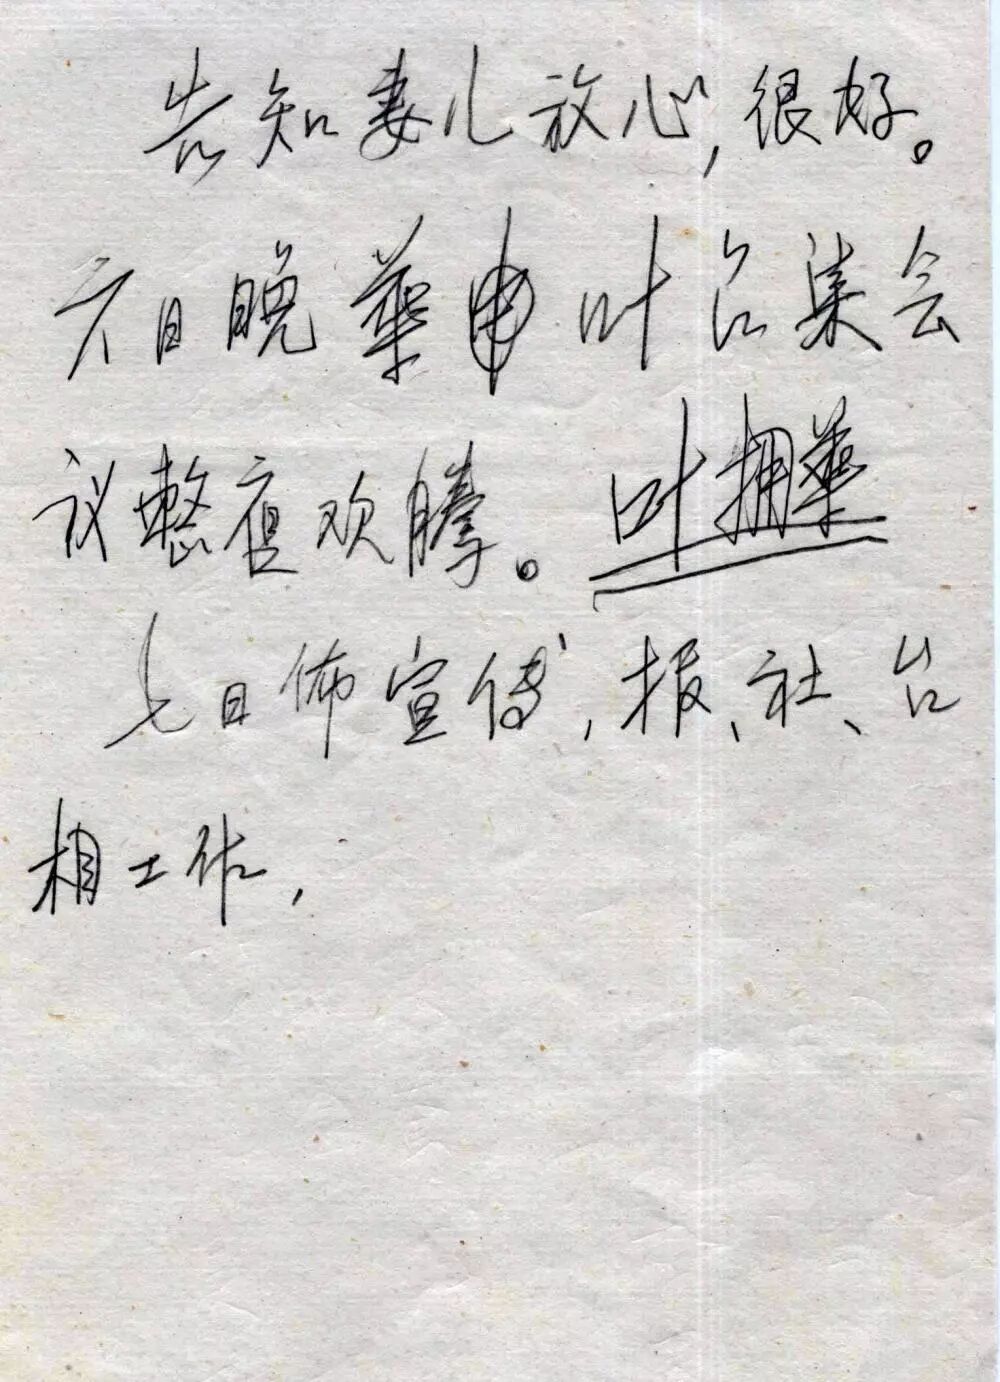 告知妻儿放心，很好。
六日晚华申叶召集会
议整夜欢腾。叶拥华
七日佈宣传，报、社、台
相工作，